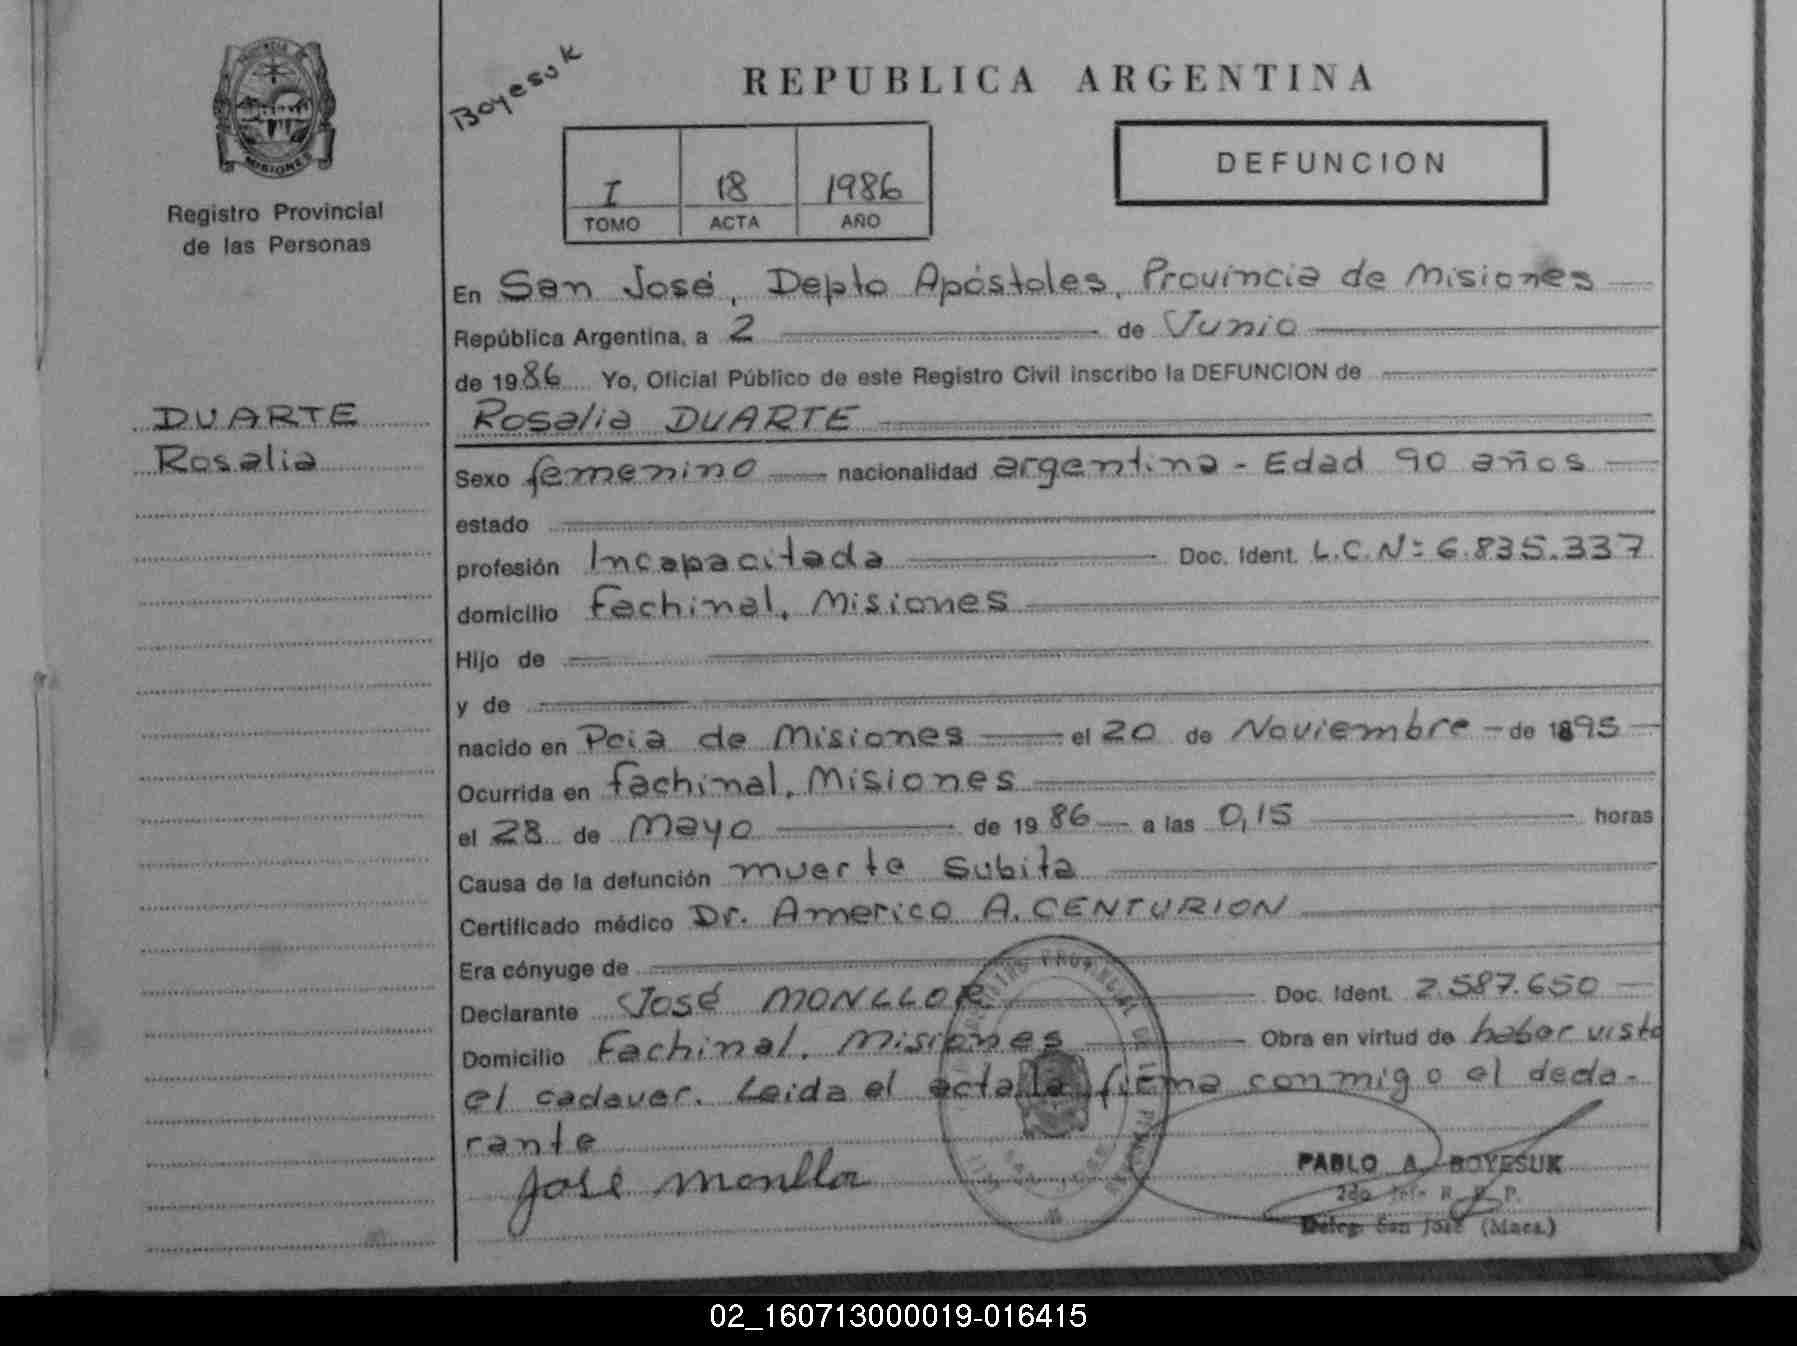 Boyesuk
REPUBLICA ARGENTINA
PROVINCIA
MISIONES
Registro Provincial
de las Personas
I 18 1986
TOMO ACTA AÑO
DEFUNCION
DUARTE
Rosalia
En San José, Depto Apóstoles, Provincia de Misiones
República Argentina, a 2 de Junio
de 1986 Yo, Oficial Público de este Registro Civil inscribo la DEFUNCION de
Rosalia DUARTE
Sexo femenino nacionalidad argentina - Edad 90 años
estado
profesión Incapacitada Doc. Ident. L.C.Nº 6.835.337
domicilio Fachinal, Misiones
Hijo de
y de
nacido en Pcia de Misiones el 20 de Noviembre - de 1895
Ocurrida en Fachinal, Misiones
el 28 de Mayo de 1986 a las 0,15 horas
Causa de la defunción muerte subita
Certificado médico Dr. Americo A. CENTURION
Era cónyuge de
Declarante José MONLLOR Doc. Ident. 2.587.650
Domicilio Fachinal, Misiones Obra en virtud de haber visto
el cadaver. Leida el acta la firma conmigo el decla-
rante
José Monllor
REGISTRO PROVINCIAL DE LAS PERSONAS
SAN JOSE
PABLO A. BOYESUK
2do Jefe R. P. P.
Deleg. San José (Mnes.)
02_160713000019-016415